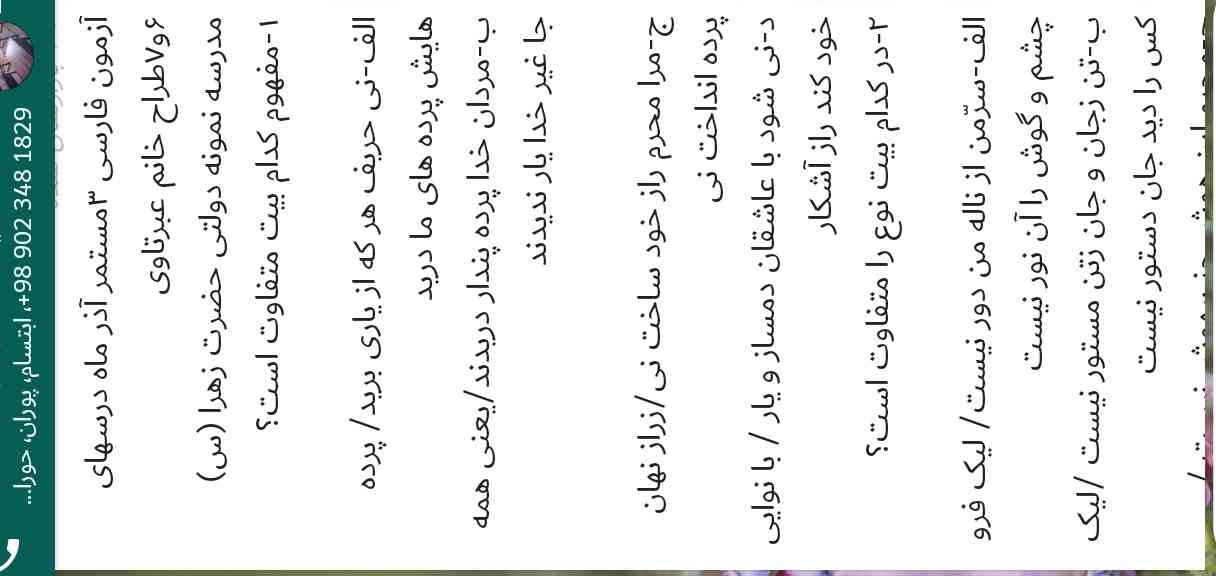 +98 902 348 1829، ابتسام، پوران، حورا...
آزمون فارسی ۳مستمر آذر ماه درسهای
۶و۷طراح خانم عبرتاوی
مدرسه نمونه دولتی حضرت زهرا (س)
۱-مفهوم کدام بیت متفاوت است؟
الف-نی حریف هر که از یاری برید/ پرده
هایش پرده های ما درید
ب-مردان خدا پرده پندار دریدند/یعنی همه
جا غیر خدا یار ندیدند
ج-مرا محرم راز خود ساخت نی/زراز نهان
پرده انداخت نی
د-نی شود با عاشقان دمساز و یار / با نوایی
خود کند راز آشکار
۲-در کدام بیت نوع را متفاوت است؟
الف-سرّمن از ناله من دور نیست/ لیک فرو
چشم و گوش را آن نور نیست
ب-تن زجان و جان زتن مستور نیست /لیک
کس را دید جان دستور نیست